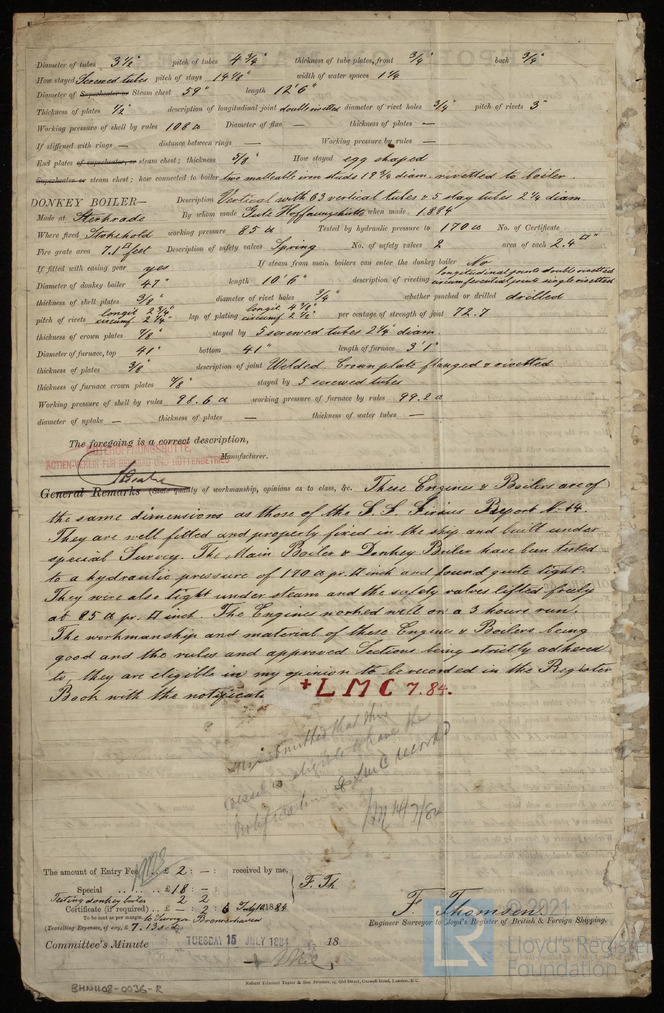 Diameter of tubes 3 ½" pitch of tubes 4 ¾" thickness of tube plates, front ¾" back ¾"
How stayed Screwed tubes pitch of stays 14 ⅝" width of water spaces 1 ¼
Diameter of Superheater or Steam chest 59" length 12' 6"
Thickness of plates ½" description of longitudinal joint double rivetted diameter of rivet holes ¾" pitch of rivets 3"
Working pressure of shell by rules 108 lb Diameter of flue — thickness of plates —
If stiffened with rings — distance between rings — Working pressure by rules —
End plates of superheater, or steam chest; thickness ⅝" How stayed egg shaped
Superheater or steam chest; how connected to boiler two malleable iron studs diam. rivetted to boiler.
DONKEY BOILER— Description Vertical with 63 vertical tubes & 5 stay tubes 2 ¼ diam.
Made at Sterkrade By whom made Gute Hoffnungshütte when made 1884
Where fixed Stokehold working pressure 85 lb Tested by hydraulic pressure to 170 lb No. of Certificate
Fire grate area 7.1 □ feet Description of safety valves Spring No. of safety valves 2 area of each 2.4 □"
If fitted with easing gear yes If steam from main boilers can enter the donkey boiler No
Diameter of donkey boiler 47" length 10' 6" description of riveting longitudinal joints double rivetted circumferential joints single rivetted
thickness of shell plates ⅜" diameter of rivet holes ¾" whether punched or drilled drilled
pitch of rivets longit 2 ¾" circumf. 2 ¼" lap of plating longit 4 ⅛" circumf. 2 ½" per centage of strength of joint 72.7
thickness of crown plates ⅞" stayed by 5 screwed tubes 2 ¼" diam.
Diameter of furnace, top 41" bottom 41" length of furnace 3' 1"
thickness of plates ⅜" description of joint Welded. Crown plate flanged & rivetted
thickness of furnace crown plates ⅞" stayed by 5 screwed tubes
Working pressure of shell by rules 98.6 lb working pressure of furnace by rules 99.2 lb
diameter of uptake — thickness of plates — thickness of water tubes —
The foregoing is a correct description,
GUTEHOFFNUNGSHÜTTE,
Manufacturer.
ACTIEN-VEREIN FÜR BERGBAU UND HÜTTENBETRIEB
General Remarks (State quality of workmanship, opinions as to class, &c. These Engines & Boilers are of
the same dimensions as those of the S.S. Sirius Report No. 64.
They are well fitted and properly fixed in the ship and built under
special Survey. The Main Boiler & Donkey Boiler have been tested
to a hydraulic pressure of 170 lb pr. □ inch and found quite tight.
They were also tight under steam and the safety valves lifted freely
at 85 lb pr. □ inch. The Engines worked well on a 3 hours run.
The workmanship and material of these Engines & Boilers being
good and the rules and approved Sections being strictly adhered
to, they are eligible in my opinion to be recorded in the Register
Book with the notificate +LMC 7.84.
It is submitted that this
vessel is eligible to have the
notification + LMC recorded
14/7/84
The amount of Entry Fee .. £ 2 : — : received by me,
Special .. .. £ 18 : — F. Th
Testing donkey boiler 2 2
Certificate (if required) .. £ — : 2 : 6 July 10 1884
To be sent as per margin. to Surveyor Bremerhaven
(Travelling Expenses, if any, £ 7.13s.
F. Thomsen.
Engineer Surveyor to Lloyd's Register of British & Foreign Shipping.
Committee's Minute TUESDAY 15 JULY 1884 18
© 2021
LR Lloyd's Register
Foundation
BHN1108-0036-R